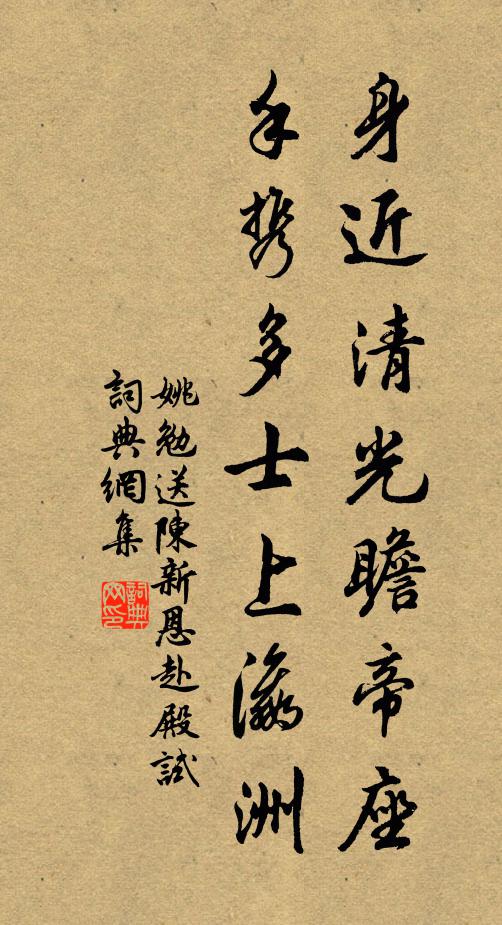 身近清光瞻帝座
手携多士上瀛洲
姚勉送陳新恩赴殿試
詞典網集
詞典網印